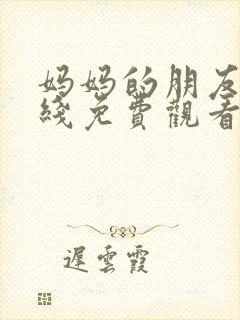 妈妈的朋友
綫免費觀看
遲雲霞